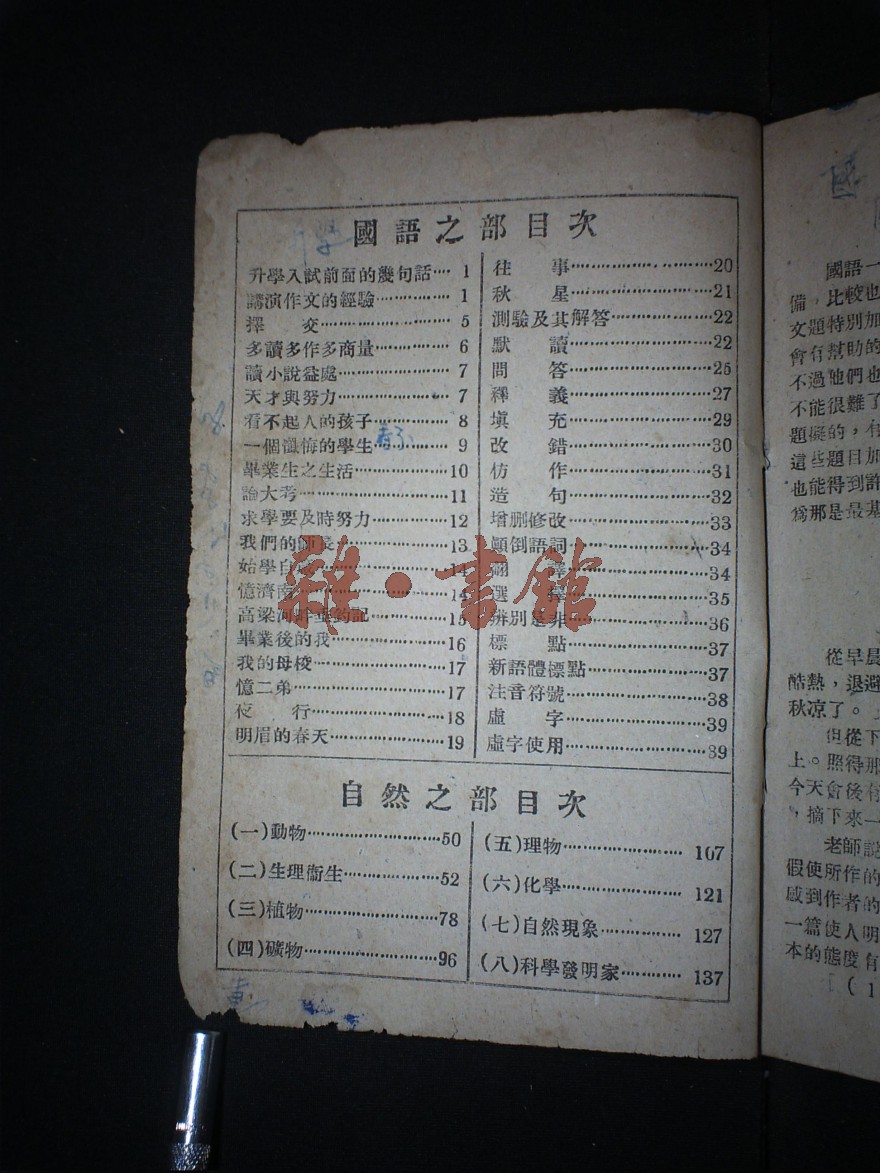 國語之部目次
升學入試前面的幾句話…1
講演作文的經驗…1
擇 交…5
多讀多作多商量…6
讀小說益處…7
天才與努力…7
看不起人的孩子…8
一個懺悔的學生…9
畢業生之生活…10
論大考…11
求學要及時努力…12
我們的師長…13
始學自…14
憶濟南…14
高梁河畔垂釣記…15
畢業後的我…16
我的母校…17
憶二弟…17
夜 行…18
明眉的春天…19
往 事…20
秋 星…21
測驗及其解答…22
默 讀…22
問 答…25
釋 義…27
填 充…29
改 錯…30
仿 作…31
造 句…32
增删修改…33
顛倒語詞…34
翻 譯…34
選 擇…35
辨別是非…36
標 點…37
新語體標點…37
注音符號…38
虛 字…39
虛字使用…39
自然之部目次
(一)動物…50
(二)生理衞生…52
(三)植物…78
(四)礦物…96
(五)理物…107
(六)化學…121
(七)自然現象…127
(八)科學發明家…137
雜·書館
國語一
備，比較也
文題特別加
會有幫助的
不過他們也
不能很難了
題擬的，有
這些題目加
也能得到許
爲那是最基
從早晨
酷熱，退避
秋凉了。
但從下
上。照得那
今天會後有
，摘下來一
老師說
假使所作的
感到作者的
一篇使人明
本的態度有
(1